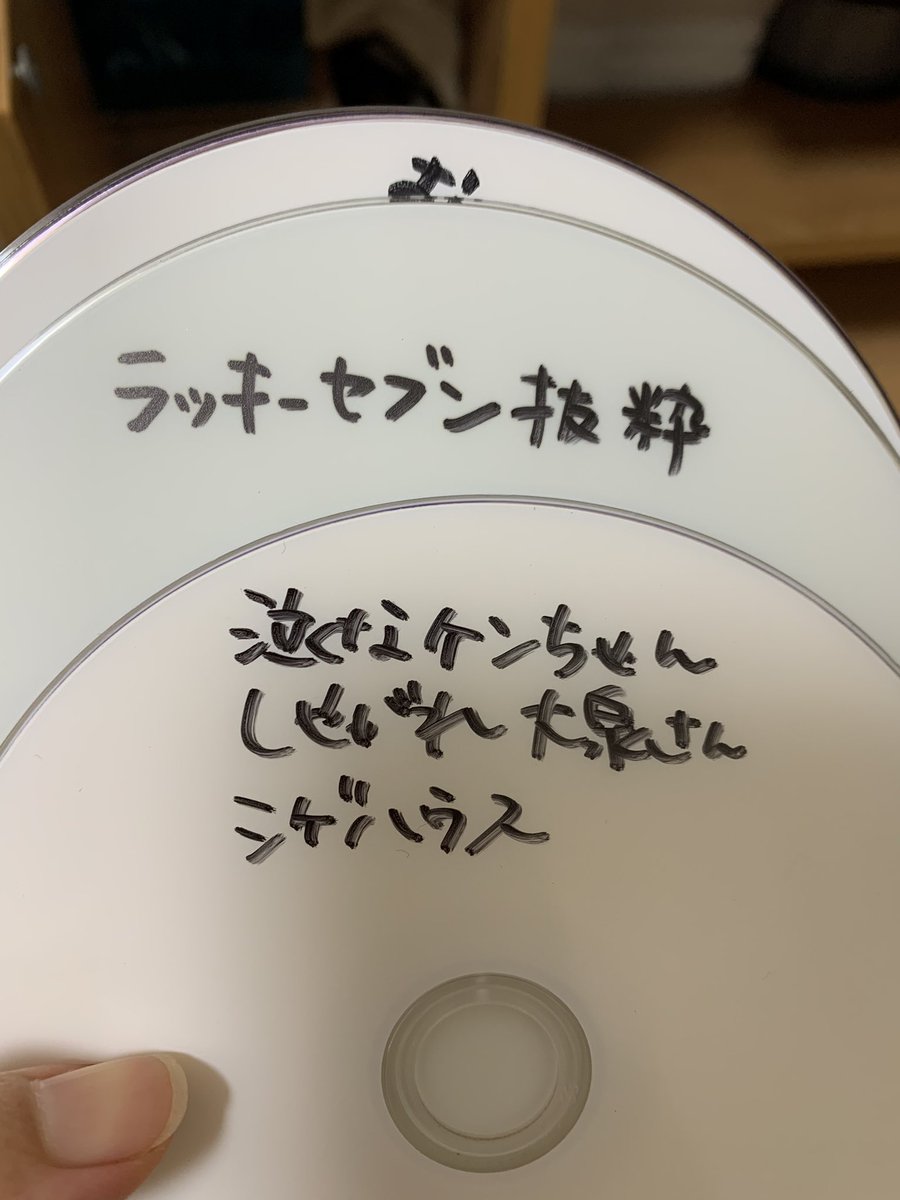 ラッキーセブン抜粋
泣くなケンちゃん
しゃがれ大泉さん
シゲハウス